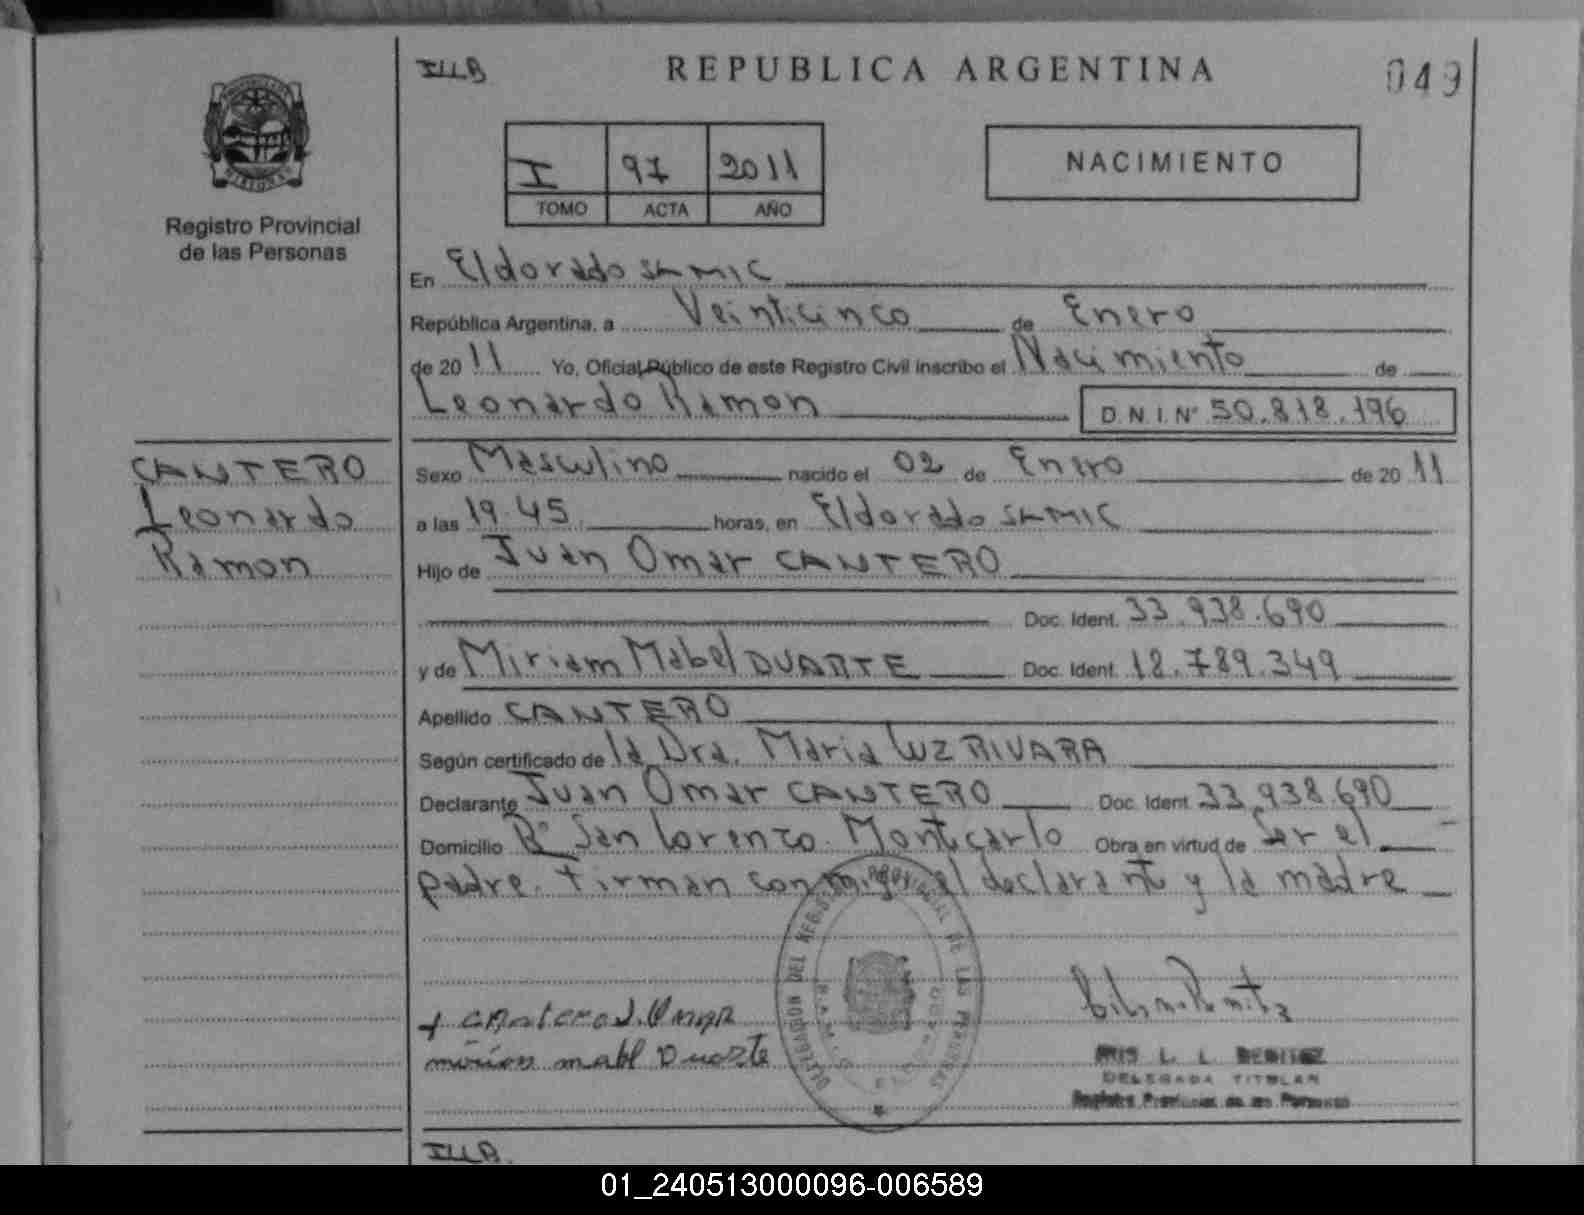 ILLB
REPUBLICA ARGENTINA
049
I 97 2011
TOMO ACTA AÑO
NACIMIENTO
Registro Provincial
de las Personas
En Eldorado SAMIC
República Argentina, a Veinticinco de Enero
de 2011 Yo, Oficial Público de este Registro Civil inscribo el Nacimiento de
Leonardo Ramon D.N.I. Nº 50.818.196
CANTERO
Leonardo
Ramon
Sexo Masculino nacido el 02 de Enero de 2011
a las 19.45 horas, en Eldorado SAMIC
Hijo de Juan Omar CANTERO
Doc. Ident. 33.938.690
y de Miriam Mabel DUARTE Doc. Ident. 18.789.349
Apellido CANTERO
Según certificado de la Dra. Maria Luz RIVARA
Declarante Juan Omar CANTERO Doc. Ident. 33.938.690
Domicilio Bº San Lorenzo. Montecarlo Obra en virtud de Ser el
padre. Firman conmigo el declarante y la madre
DELEGACION DEL REGISTRO PROVINCIAL DE LAS PERSONAS
S.A.M.I.C. ELDORADO
+ CANTERO J. OMAR
mirian mabl Duarte
IRIS L. L. BENITEZ
DELEGADA TITULAR
Registro Provincial de las Personas
ILLB.
01_240513000096-006589